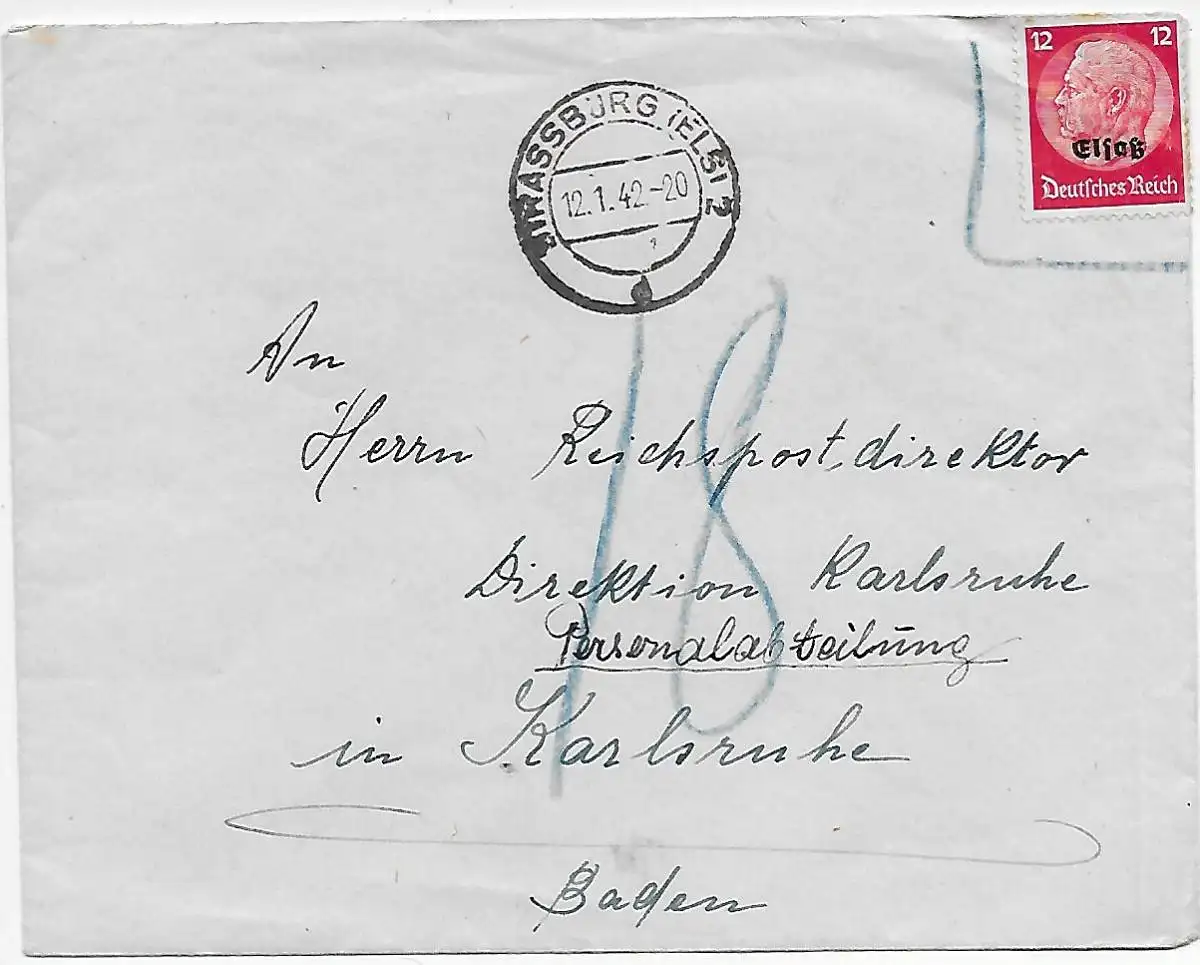 12 12
Elsaß
Deutsches Reich
STRASSBURG (ELS) 2
12.1.42.-20
d
18
An
Herrn Reichspostdirektor
Direktion Karlsruhe
Personalabteilung
in Karlsruhe
Baden